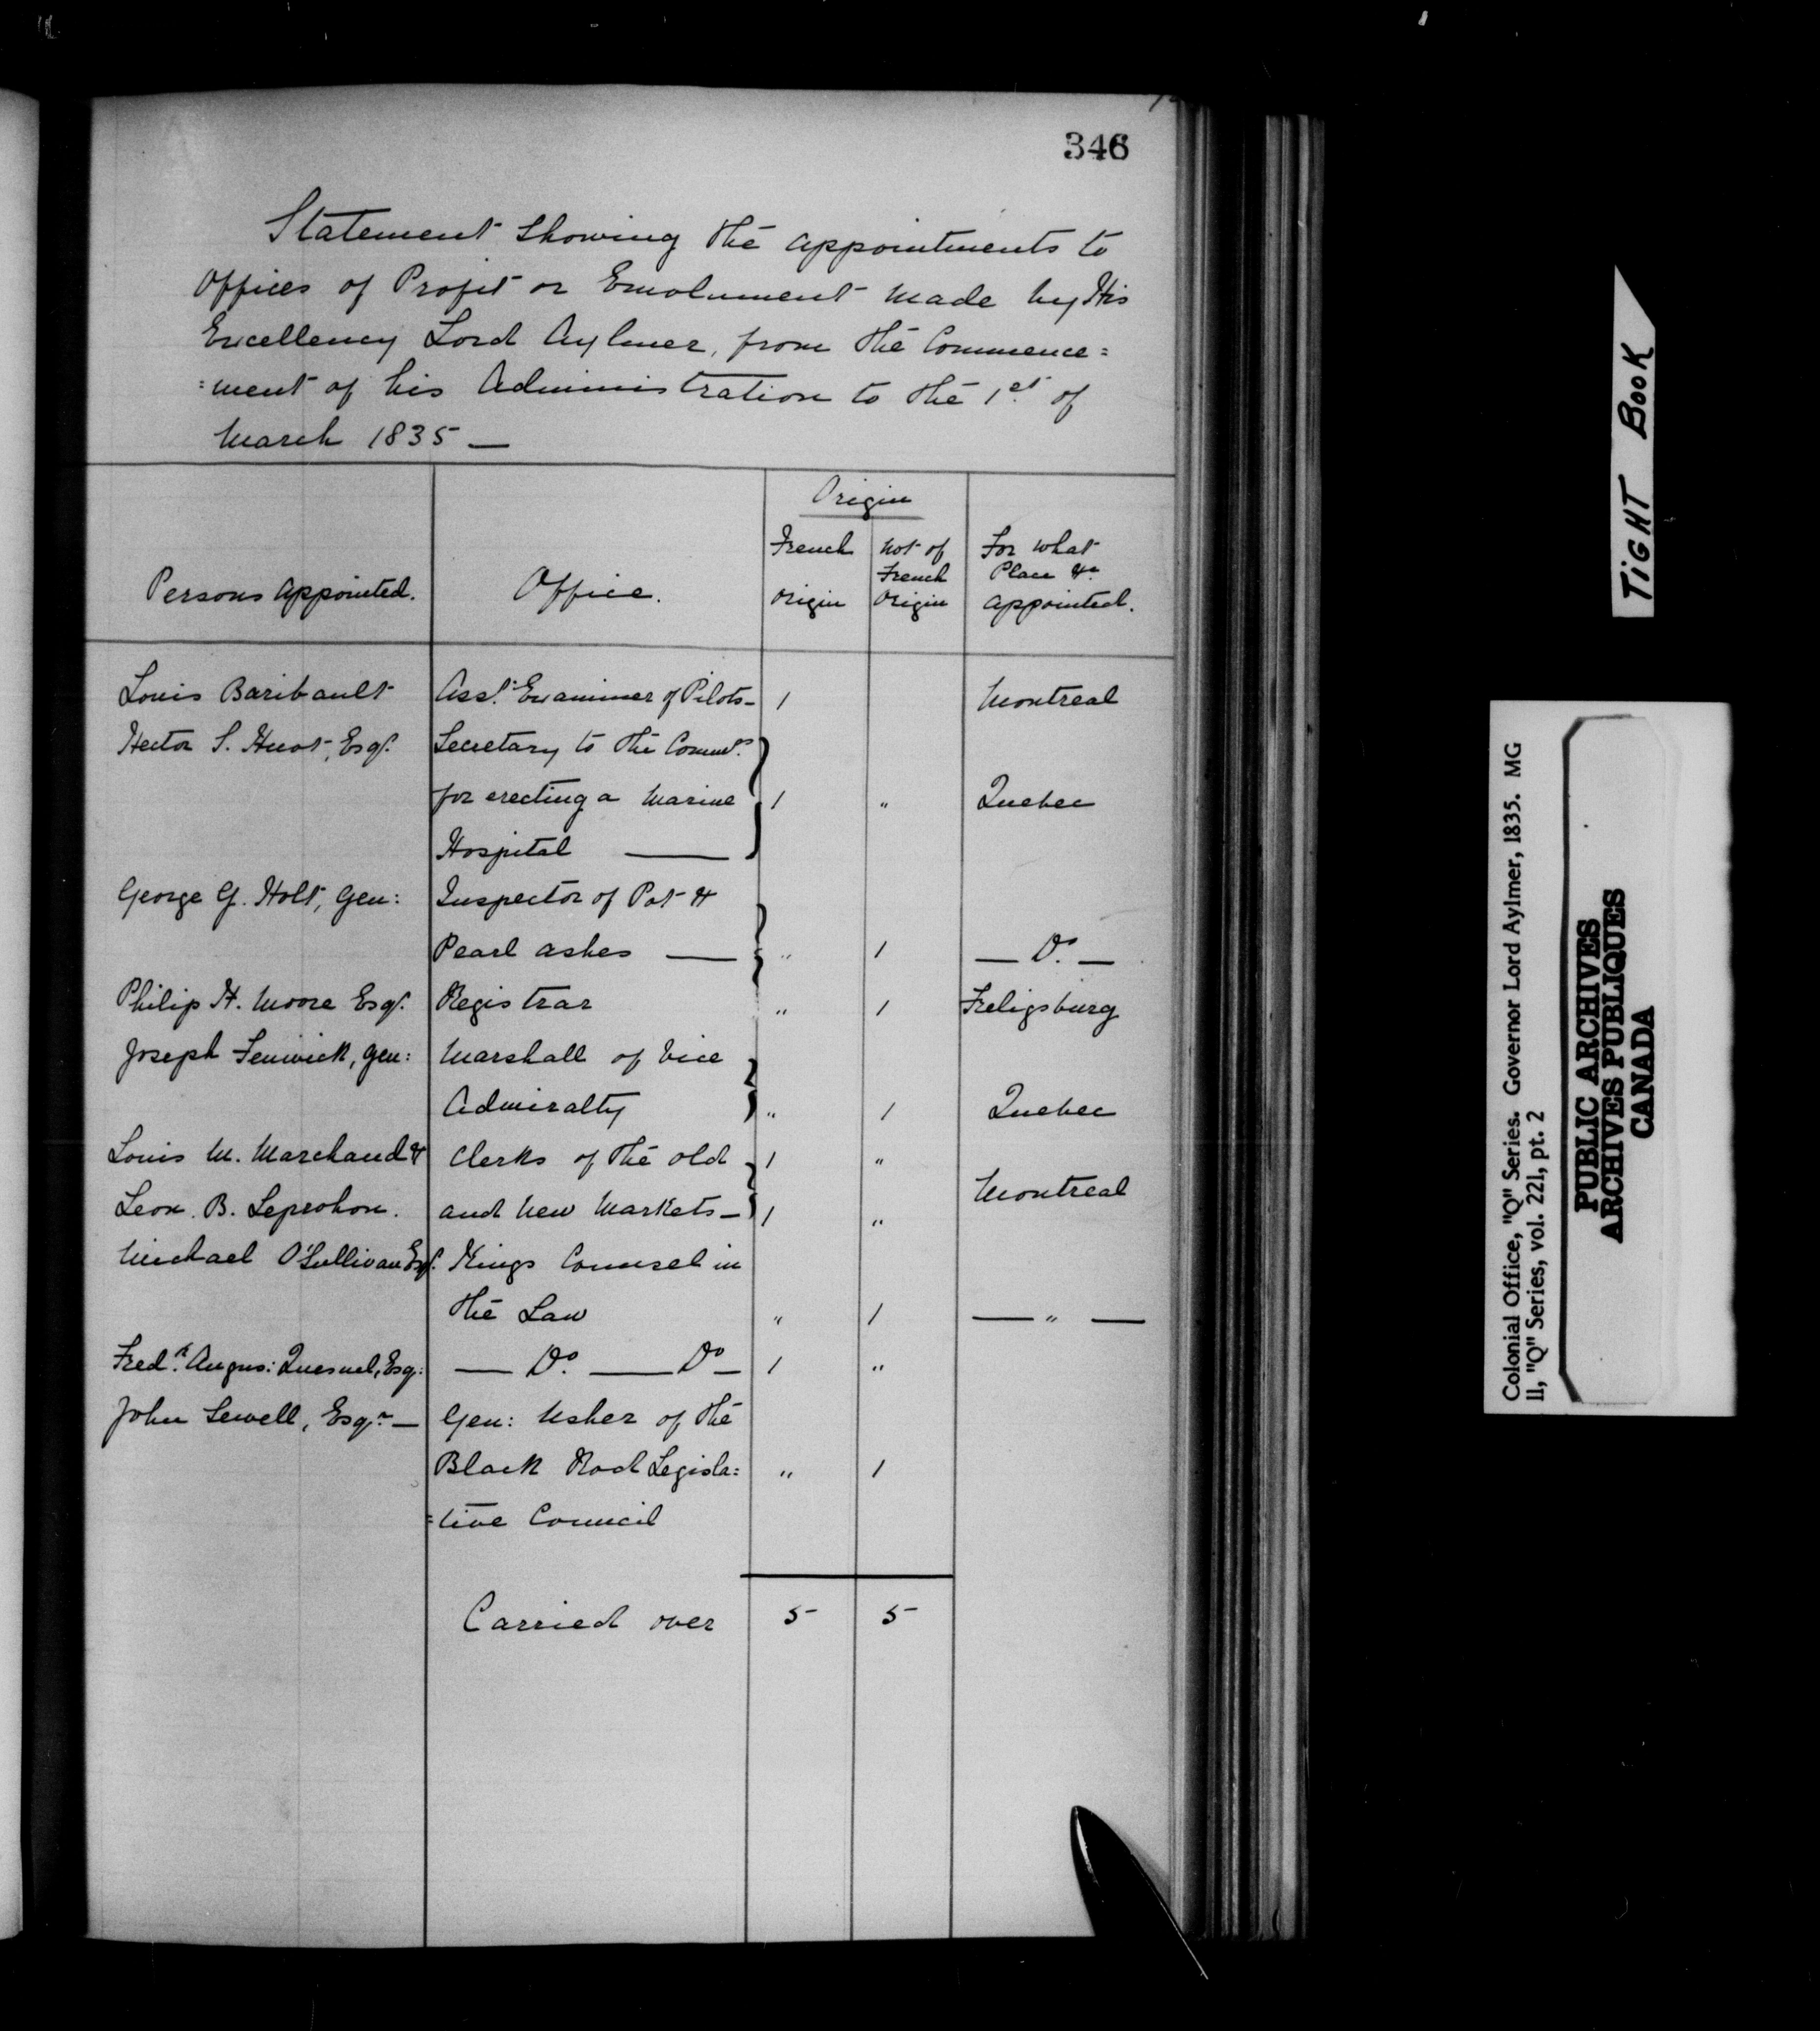 346
Statement Showing the appointments to
Offices of Profit or Emolument made by His
Excellency Lord Aylmer, from the Commence=
=ment of his Administration to the 1st of
March 1835 —
Persons appointed. Office. Origin
French Origin Not of French Origin For what Place &c appointed.
Louis Baribault Asst. Examiner of Pilots - 1 Montreal
Hector S. Huot, Esqr. Secretary to the Commrs.
for erecting a Marine 1 " Quebec
Hospital —
George G. Holt, Gen: Inspector of Pot &
Pearl ashes — " 1 — Do. —
Philip H. Moore Esqr. Registrar " 1 Freligsburg
Joseph Fenwick, Gen: Marshall of Vice
Admiralty " 1 Quebec
Louis M. Marchand & Clerks of the old 1 "
Leon. B. Leprohon. and New Markets — 1 " Montreal
Michael O'Sullivan Esqr. Kings Counsel in
the Law " 1 — " —
Fredk. Augus: Quesnel, Esq: — Do. — Do — 1 "
John Sewell, Esqr. — Gen: Usher of the
Black Rod Legisla= " 1
=tive Council
Carried over 5 5
TIGHT BOOK
Colonial Office, "Q" Series. Governor Lord Aylmer, 1835. MG
11, "Q" Series, vol. 221, pt. 2
PUBLIC ARCHIVES
ARCHIVES PUBLIQUES
CANADA